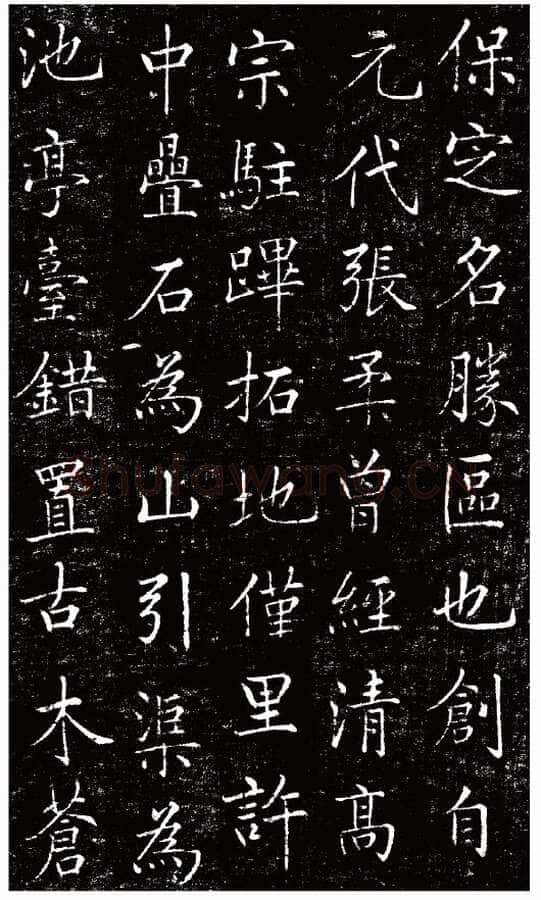 保定名勝區也創自
元代張柔曾經清高
宗駐蹕拓地僅里許
中疊石為山引渠為
池亭臺錯置古木蒼
Shufawang.CN